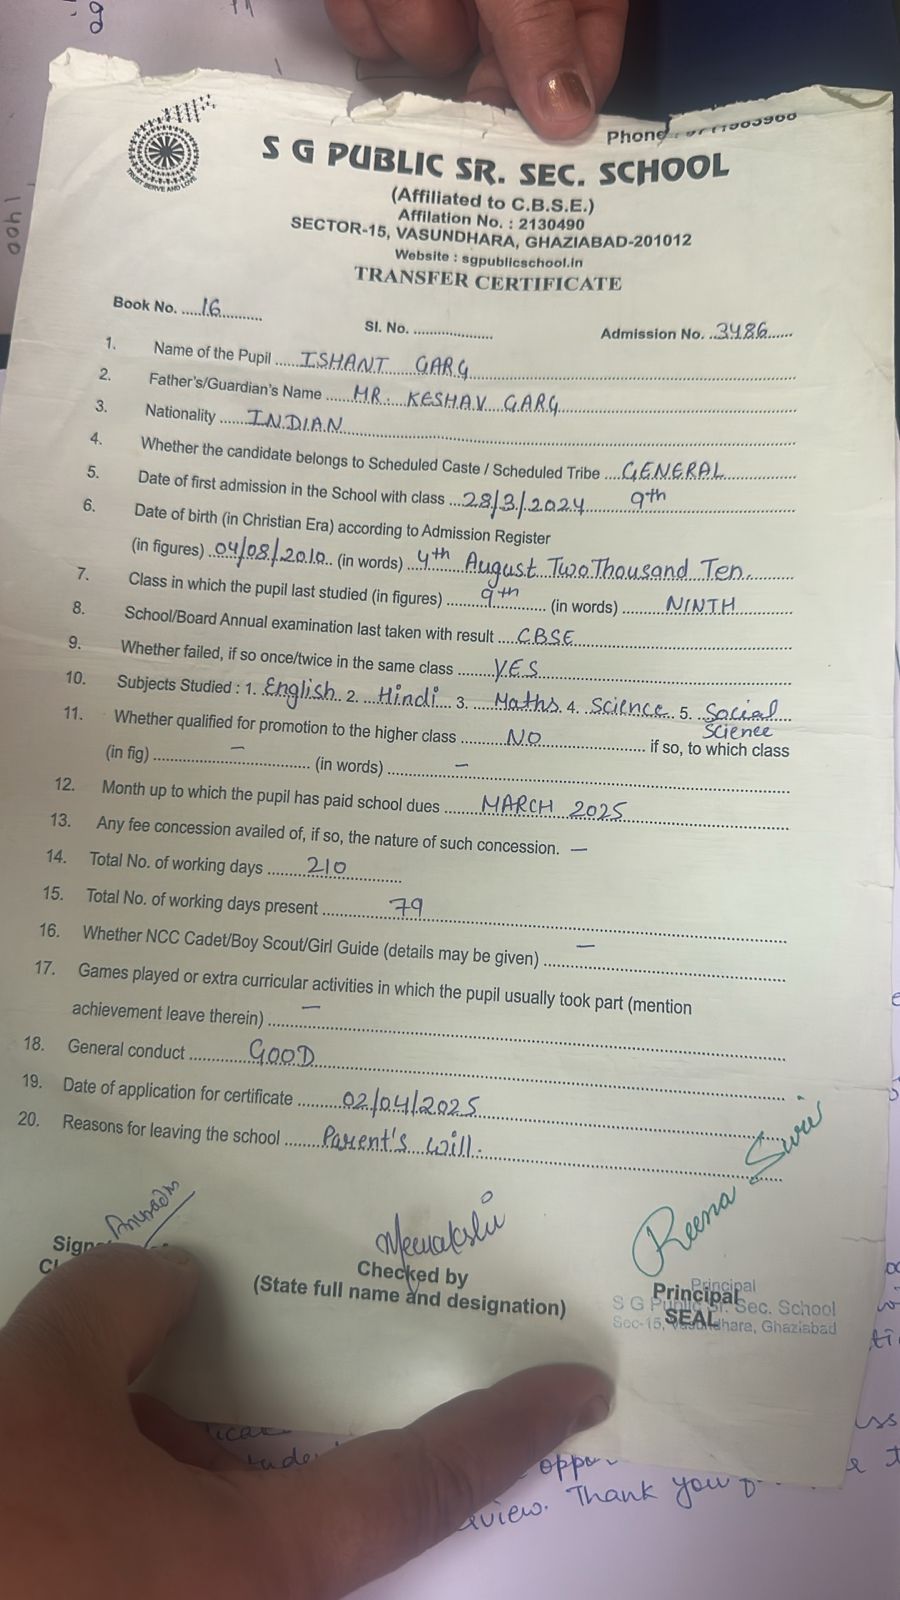 TRUST SERVE AND LOVE
S G PUBLIC SR. SEC. SCHOOL
(Affiliated to C.B.S.E.)
Affilation No. : 2130490
SECTOR-15, VASUNDHARA, GHAZIABAD-201012
Website : sgpublicschool.in
TRANSFER CERTIFICATE
Book No. .....16...........
Sl. No. ......................
Admission No. ..3486......
1. Name of the Pupil ......ISHANT GARG
2. Father's/Guardian's Name ......MR. KESHAV GARG
3. Nationality ......INDIAN
4. Whether the candidate belongs to Scheduled Caste / Scheduled Tribe ...GENERAL
5. Date of first admission in the School with class ...28/3/2024 9th
6. Date of birth (in Christian Era) according to Admission Register
(in figures) 04/08/2010 (in words) 4th August Two Thousand Ten.
7. Class in which the pupil last studied (in figures) ......9th...... (in words) ......NINTH
8. School/Board Annual examination last taken with result ....CBSE
9. Whether failed, if so once/twice in the same class ......YES
10. Subjects Studied : 1. English 2. Hindi 3. Maths 4. Science 5. Social
Science
11. Whether qualified for promotion to the higher class ......NO...... if so, to which class
(in fig) ......–...... (in words) ......–
12. Month up to which the pupil has paid school dues ......MARCH 2025
13. Any fee concession availed of, if so, the nature of such concession. –
14. Total No. of working days ......210
15. Total No. of working days present ......79
16. Whether NCC Cadet/Boy Scout/Girl Guide (details may be given) ......–
17. Games played or extra curricular activities in which the pupil usually took part (mention
achievement leave therein) ......–
18. General conduct ......GOOD
19. Date of application for certificate ......02/04/2025
20. Reasons for leaving the school ......Parent's will.
Meenakshi
Reena
Checked by
(State full name and designation)
Principal
SEAL
Principal
S G Public Sr. Sec. School
Sec-15, Vasundhara, Ghaziabad
Thank you